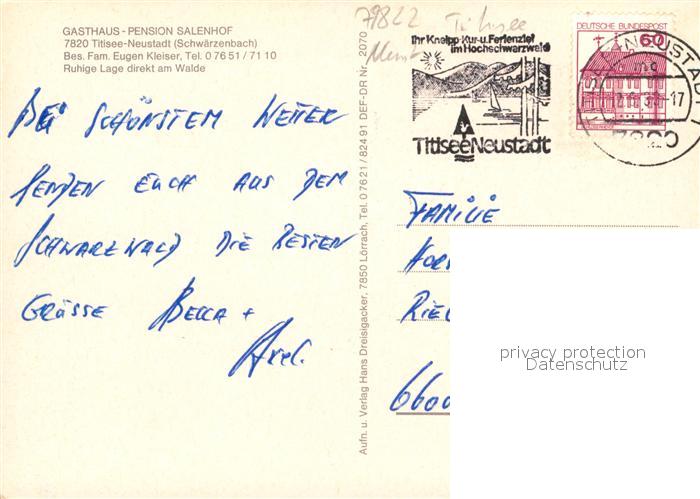 GASTHAUS - PENSION SALENHOF
7820 Titisee-Neustadt (Schwärzenbach)
Bes. Fam. Eugen Kleiser, Tel. 0 76 51 / 71 10
Ruhige Lage direkt am Walde
BEI SCHÖNSTEM WETTER
SENDEN EUCH AUS DEM
SCHWARZWALD DIE BESTEN
GRÜSSE BECCA +
Axel.
Aufn. u. Verlag Hans Dreisigacker, 7850 Lörrach, Tel. 0 76 21 / 8 24 91 DEF-DR Nr. 2070
79822 Titisee
Neust
Ihr Kneipp-Kur-u. Ferienziel
im Hochschwarzwald
Titisee Neustadt
DEUTSCHE BUNDESPOST
60
-17
7820
FAMILIE
6600
privacy protection
Datenschutz